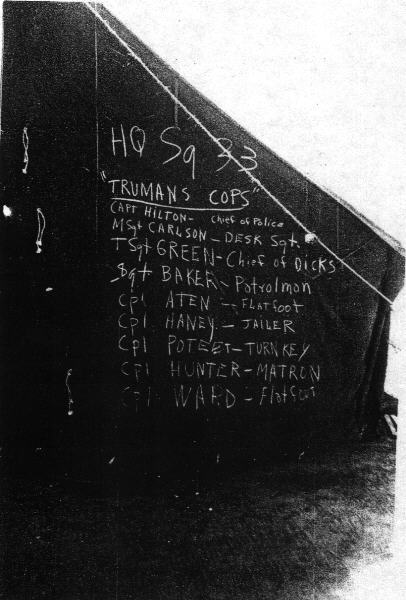 HQ Sq 33
"TRUMANS COPS"
CAPT HILTON- Chief of Police
MSgt CARLSON - DESK Sgt.
TSgt GREEN - Chief of DICKS
Sgt BAKER - Patrolman
Cpl ATEN - FLATfoot
Cpl HANEY - JAILER
Cpl POTEET - TURNKEY
Cpl HUNTER - MATRON
Cpl WARD - Flatfoot